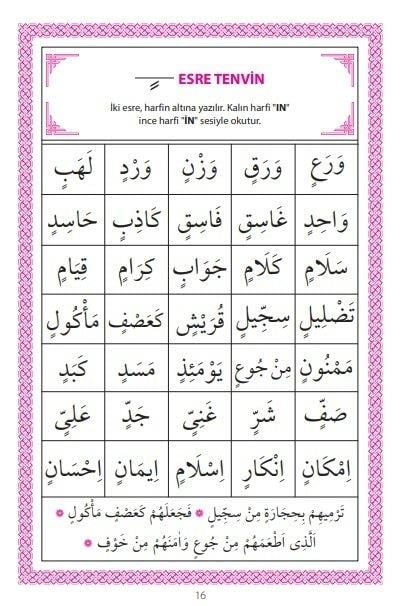 ـٍ ESRE TENVİN
İki esre, harfin altına yazılır. Kalın harfi "IN"
ince harfi "İN" sesiyle okutur.
وَرَعٍ وَرَقٍ وَزْنٍ وَرْدٍ لَهَبٍ
وَاحِدٍ غَاسِقٍ فَاسِقٍ كَاذِبٍ حَاسِدٍ
سَلَامٍ كَلَامٍ جَوَابٍ كِرَامٍ قِيَامٍ
تَضْلِيلٍ سِجِّيلٍ قُرَيْشٍ كَعَصْفٍ مَأْكُولٍ
مَمْنُونٍ مِنْ جُوعٍ يَوْمَئِذٍ مَسَدٍ كَبَدٍ
صَفٍّ شَرٍّ غَنِىٍّ جَدٍّ عَلِىٍّ
اِمْكَانٍ اِنْكَارٍ اِسْلَامٍ اِيمَانٍ اِحْسَانٍ
تَرْمِيهِمْ بِحِجَارَةٍ مِنْ سِجِّيلٍ * فَجَعَلَهُمْ كَعَصْفٍ مَأْكُولٍ *
اَلَّذِى اَطْعَمَهُمْ مِنْ جُوعٍ وَاٰمَنَهُمْ مِنْ خَوْفٍ *
16